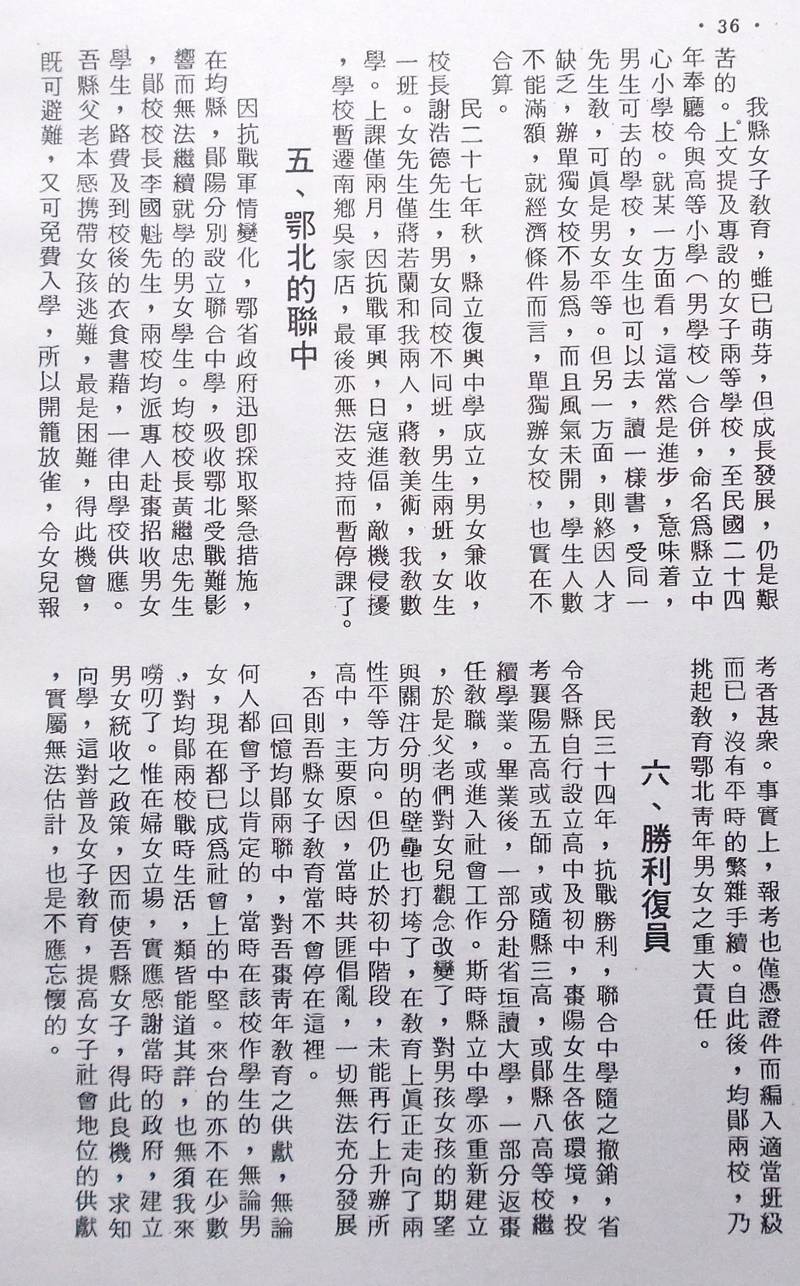 · 36 ·
我縣女子教育，雖已萌芽，但成長發展，仍是艱
苦的。上文提及專設的女子兩等學校，至民國二十四
年奉廳令與高等小學（男學校）合併，命名爲縣立中
心小學校。就某一方面看，這當然是進步，意味着，
男生可去的學校，女生也可以去，讀一樣書，受同一
先生教，可眞是男女平等。但另一方面，則終因人才
缺乏，辦單獨女校不易爲，而且風氣未開，學生人數
不能滿額，就經濟條件而言，單獨辦女校，也實在不
合算。
民二十七年秋，縣立復興中學成立，男女兼收，
校長謝浩德先生，男女同校不同班，男生兩班，女生
一班。女先生僅蔣若蘭和我兩人，蔣教美術，我教數
學。上課僅兩月，因抗戰軍興，日寇進偪，敵機侵擾
，學校暫遷南鄉吳家店，最後亦無法支持而暫停課了。
五、鄂北的聯中
因抗戰軍情變化，鄂省政府迅卽採取緊急措施，
在均縣，鄖陽分別設立聯合中學，吸收鄂北受戰難影
響而無法繼續就學的男女學生。均校校長黃繼忠先生
，鄖校校長李國魁先生，兩校均派專人赴棗招收男女
學生，路費及到校後的衣食書藉，一律由學校供應。
吾縣父老本感携帶女孩逃難，最是困難，得此機會，
旣可避難，又可免費入學，所以開籠放雀，令女兒報
考者甚衆。事實上，報考也僅憑證件而編入適當班級
而已，沒有平時的繁雜手續。自此後，均鄖兩校，乃
挑起教育鄂北靑年男女之重大責任。
六、勝利復員
民三十四年，抗戰勝利，聯合中學隨之撤銷，省
令各縣自行設立高中及初中，棗陽女生各依環境，投
考襄陽五高或五師，或隨縣三高，或鄖縣八高等校繼
續學業。畢業後，一部分赴省垣讀大學，一部分返棗
任教職，或進入社會工作。斯時縣立中學亦重新建立
，於是父老們對女兒觀念改變了，對男孩女孩的期望
與關注分明的壁壘也打垮了，在教育上眞正走向了兩
性平等方向。但仍止於初中階段，未能再行上升辦所
高中，主要原因，當時共匪倡亂，一切無法充分發展
，否則吾縣女子教育當不會停在這裡。
回憶均鄖兩聯中，對吾棗靑年教育之供獻，無論
何人都會予以肯定的，當時在該校作學生的，無論男
女，現在都已成爲社會上的中堅。來台的亦不在少數
，對均鄖兩校戰時生活，類皆能道其詳，也無須我來
嘮叨了。惟在婦女立場，實應感謝當時的政府，建立
男女統收之政策，因而使吾縣女子，得此良機，求知
向學，這對普及女子教育，提高女子社會地位的供獻
，實屬無法估計，也是不應忘懷的。